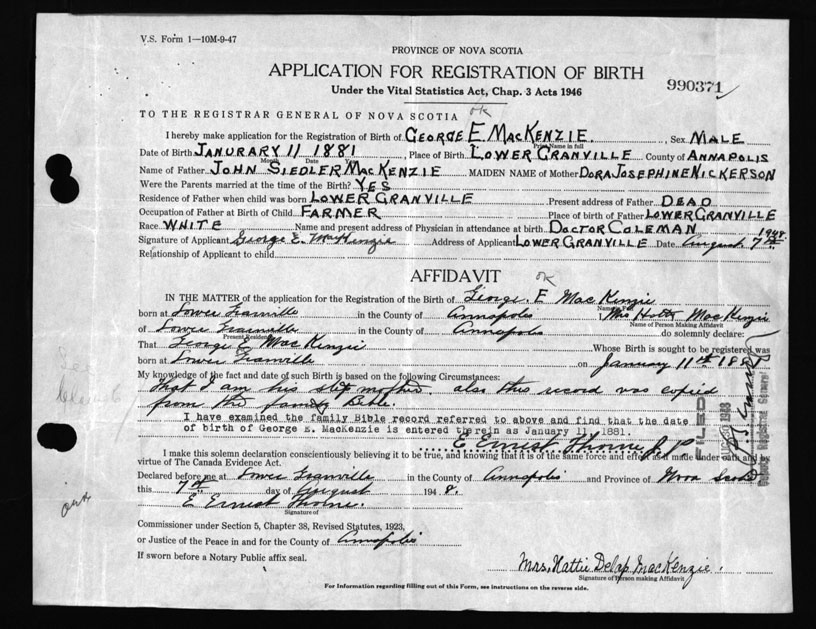 V.S. Form 1—10M-9-47
PROVINCE OF NOVA SCOTIA
APPLICATION FOR REGISTRATION OF BIRTH
Under the Vital Statistics Act, Chap. 3 Acts 1946
990371
ok
TO THE REGISTRAR GENERAL OF NOVA SCOTIA
I hereby make application for the Registration of Birth of GEORGE E MACKENZIE. , Sex MALE
Print Name in full
Date of Birth JANURARY 11 1881 , Place of Birth LOWER GRANVILLE County of ANNAPOLIS
Month Date Year
Name of Father JOHN SIEDLER MACKENZIE MAIDEN NAME of Mother DORA JOSEPHINE NICKERSON
Were the Parents married at the time of the Birth? YES
Residence of Father when child was born LOWER GRANVILLE Present address of Father DEAD
Occupation of Father at Birth of Child FARMER Place of birth of Father LOWER GRANVILLE
Race WHITE Name and present address of Physician in attendance at birth DOCTOR COLEMAN
Signature of Applicant George E. MacKenzie Address of Applicant LOWER GRANVILLE Date August 7th 1948
Relationship of Applicant to child
AFFIDAVIT
ok
IN THE MATTER of the application for the Registration of the Birth of George E MacKenzie
Name in Full
born at Lower Granville in the County of Annapolis I Mrs MacKenzie
Name of Person Making Affidavit
of Lower Granville in the County of Annapolis do solemnly declare:
Present Residence
That George E MacKenzie Whose Birth is sought to be registered was
born at Lower Granville on January 11th 1881
My knowledge of the fact and date of such Birth is based on the following Circumstances:
That I am his step mother. also this record was copied
from the family Bible.
I have examined the family Bible record referred to above and find that the date
of birth of George E. MacKenzie is entered therein as January 11, 1881.
E Ernest Thorne J.P.
I make this solemn declaration conscientiously believing it to be true, and knowing that it is of the same force and effect as if made under oath and by
virtue of The Canada Evidence Act.
Declared before me at Lower Granville in the County of Annapolis and Province of Nova Scotia
this 7th day of August 1948.
E Ernest Thorne.
Signature of
Commissioner under Section 5, Chapter 38, Revised Statutes, 1923,
or Justice of the Peace in and for the County of Annapolis
If sworn before a Notary Public affix seal.
Mrs. Hattie Delap MacKenzie.
Signature of Person making Affidavit
For Information regarding filling out of this Form, see instructions on the reverse side.
FILED